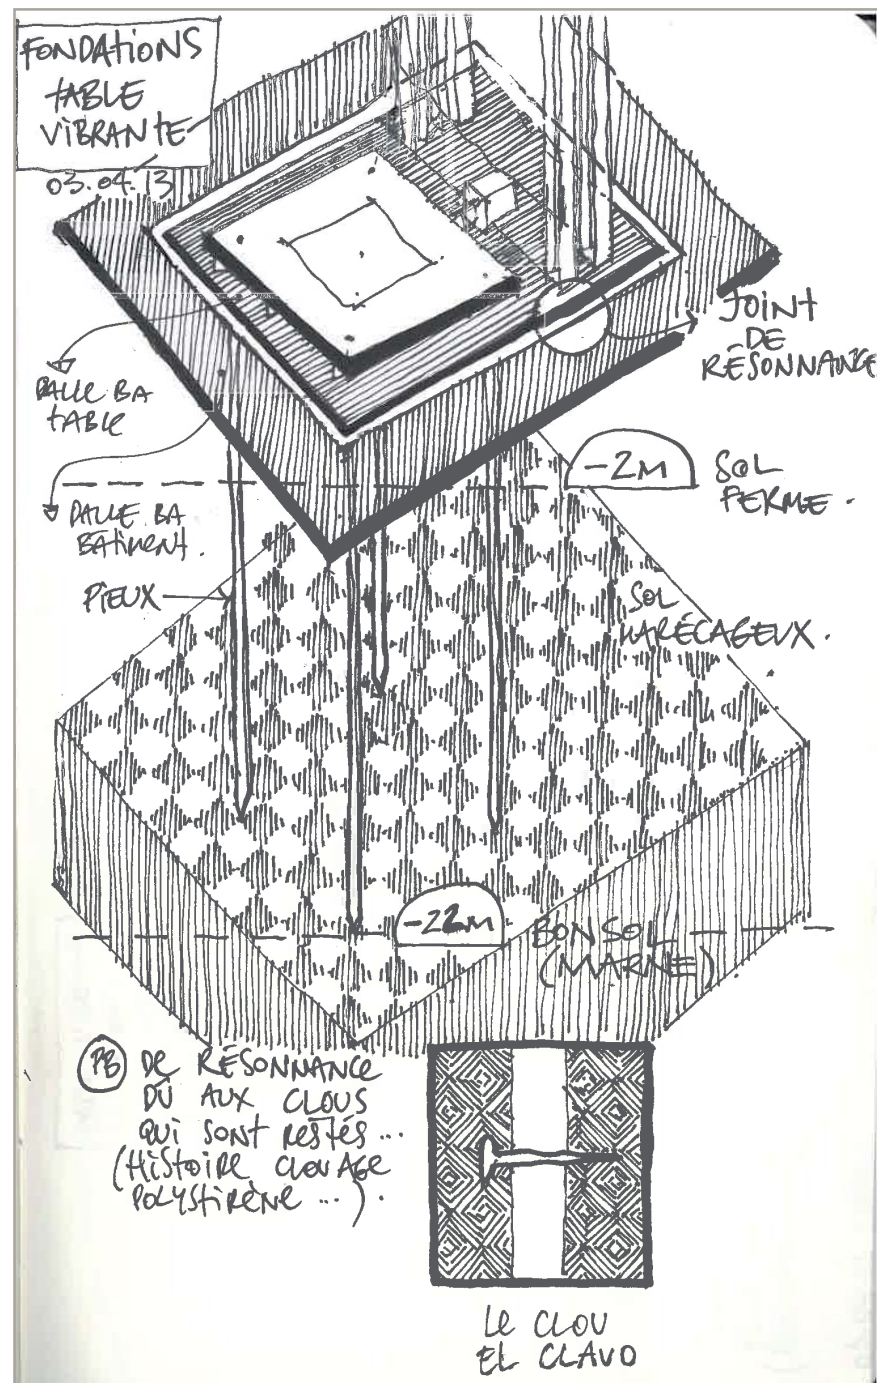 FONDATIONS
TABLE
VIBRANTE
03.04.13
JOINT
DE
RÉSONNANCE
DALLE BA
TABLE
-2M
SOL
FERME.
DALLE BA
BÂTIMENT.
PIEUX
SOL
MARÉCAGEUX.
-22M
BON SOL
(MARNE)
PB DE RÉSONNANCE
DÛ AUX CLOUS
QUI SONT RESTÉS...
(HISTOIRE CLOUAGE
POLYSTIRÈNE...).
LE CLOU
EL CLAVO